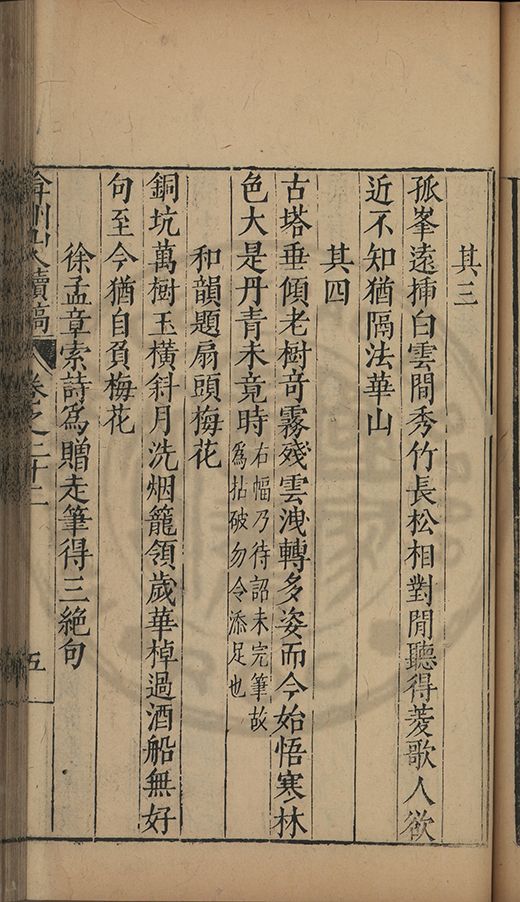 其三
孤峯遠揷白雲間秀竹長松相對閒聽得菱歌人欲
近不知猶隔法華山
其四
古塔垂傾老樹竒霧殘雲洩轉多姿而今始悟寒林
色大是丹青未竟時
右幅乃待詔未完筆故
爲拈破勿令添足也
和韻題扇頭梅花
銅坑萬樹玉橫斜月洗烟籠領歲華棹過酒船無好
句至今猶自負梅花
徐孟章索詩爲贈走筆得三絶句
弇州山人續稿
卷之二十二
五